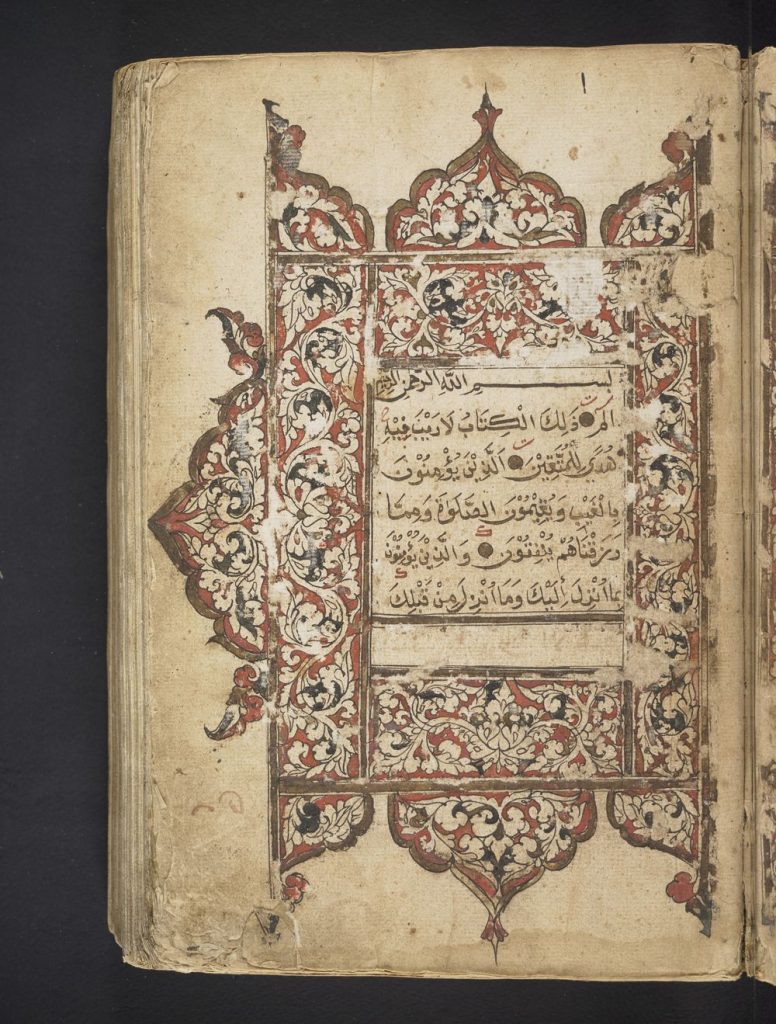 بِسْمِ اللَّهِ الرَّحْمٰنِ الرَّحِيْمِ
الم ذٰلِكَ الْكِتَابُ لَا رَيْبَ فِيْهِ
هُدًى لِلْمُتَّقِيْنَ الَّذِيْنَ يُؤْمِنُوْنَ
بِالْغَيْبِ وَيُقِيْمُوْنَ الصَّلَوٰةَ وَمِمَّا
رَزَقْنَاهُمْ يُنْفِقُوْنَ وَالَّذِيْنَ يُؤْمِنُوْنَ
مَا اُنْزِلَ اِلَيْكَ وَمَا اُنْزِلَ مِنْ قَبْلِكَ